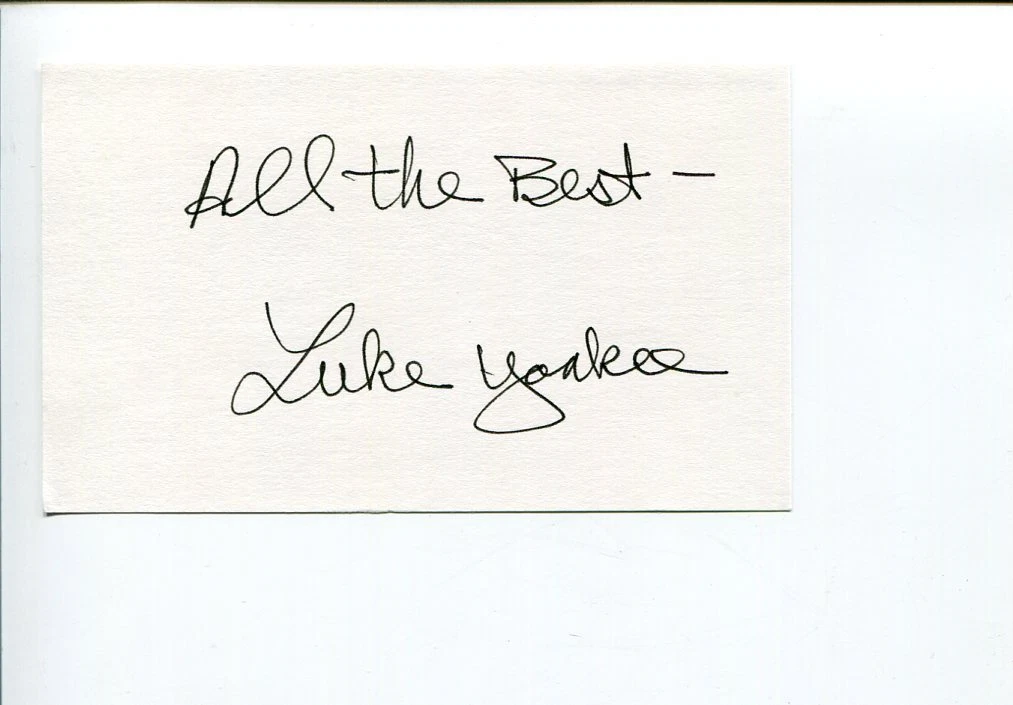 All the Best –
Luke Yoakee